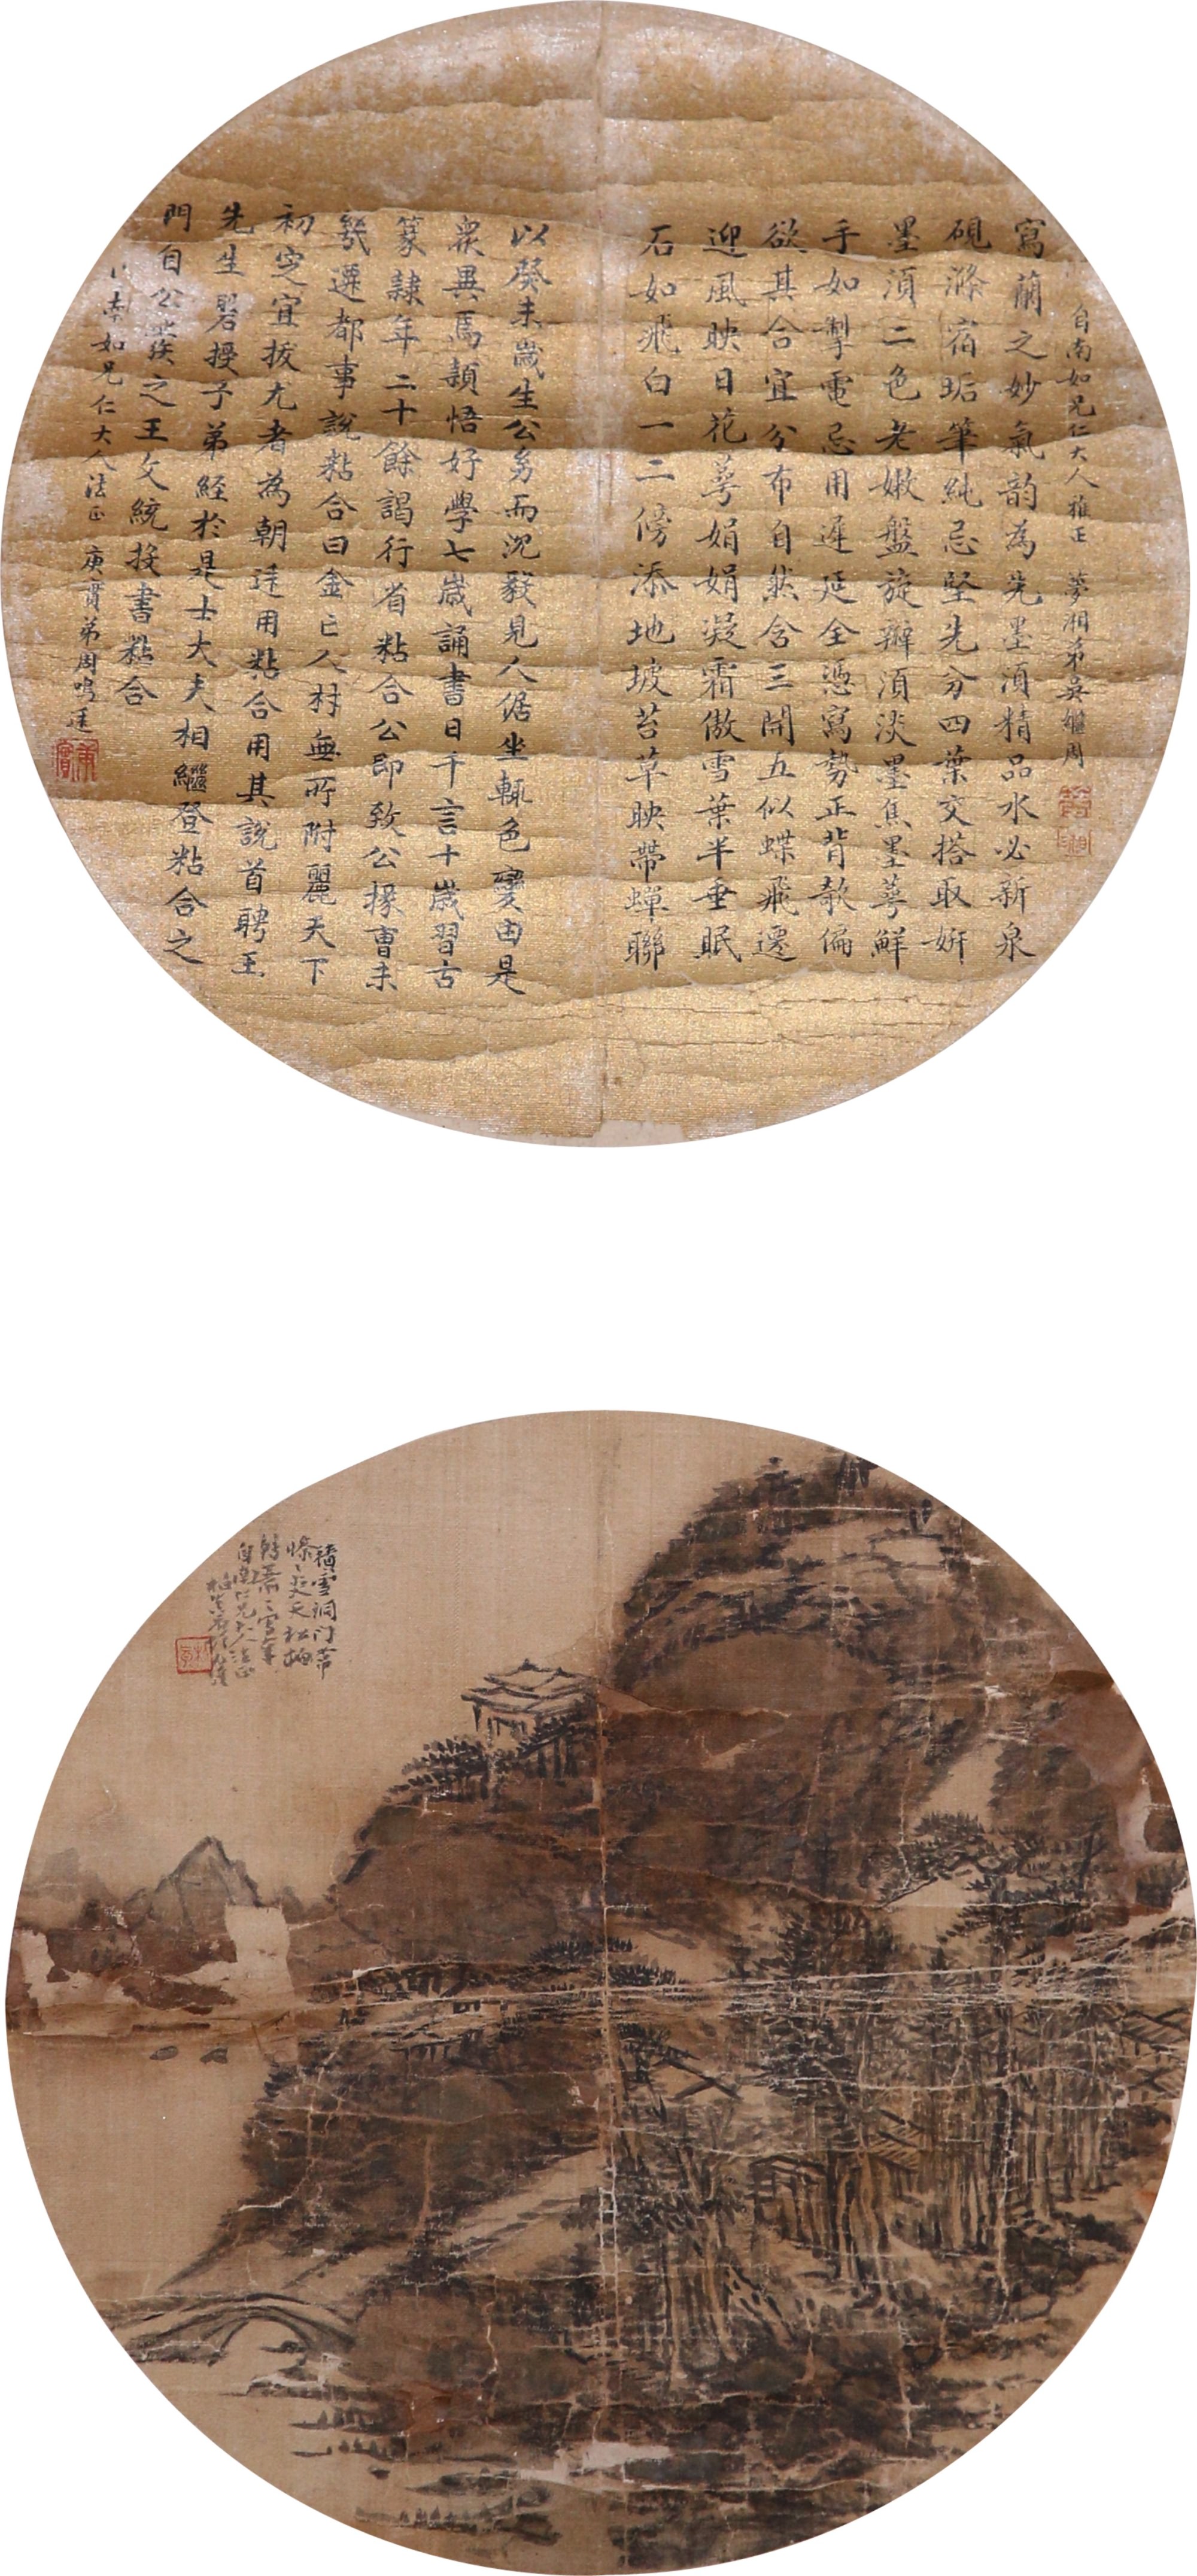 寫蘭之妙氣韵為先墨湏精品水必新泉
硯滌宿垢筆純忌堅先分四葉交搭取姸
墨湏二色老嫩盤旋瓣湏淡墨焦墨萼鮮
手如掣電忌用遲延全憑寫勢正背欹偏
欲其合宜分布自然含三開五似蝶飛遷
迎風映日花萼娟娟凝霜傲雪葉半垂眠
石如飛白一二傍添地坡苔草映帶蟬聯
自南如兄仁大人雅正 夢湘弟吳繼周
以癸未歲生公㓜而沉毅見人倨坐輒色變由是
衆異焉頴悟好學七歲誦書日千言十歲習古
篆隷年二十餘謁行省粘合公即致公掾曹未
㡬遷都事說粘合曰金亡人材無所附麗天下
初定宜拔尤者為朝廷用粘合用其說首聘王
先生磐授子弟經於是士大夫相繼登粘合之
門自公發之王文統投書粘合
南如兄仁大人法正 庚賔弟周鳴廷
積雪洞门
自南仁兄大人法正